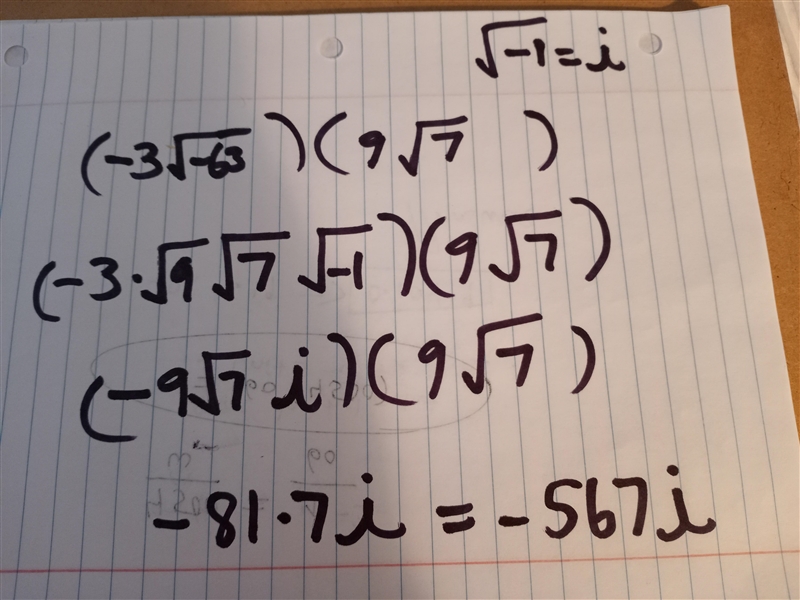 √-1 = i
(-3√-63 )( 9√7 )
(-3·√9 √7 √-1)(9√7)
(-9√7 i)(9√7)
-81·7i = -567i